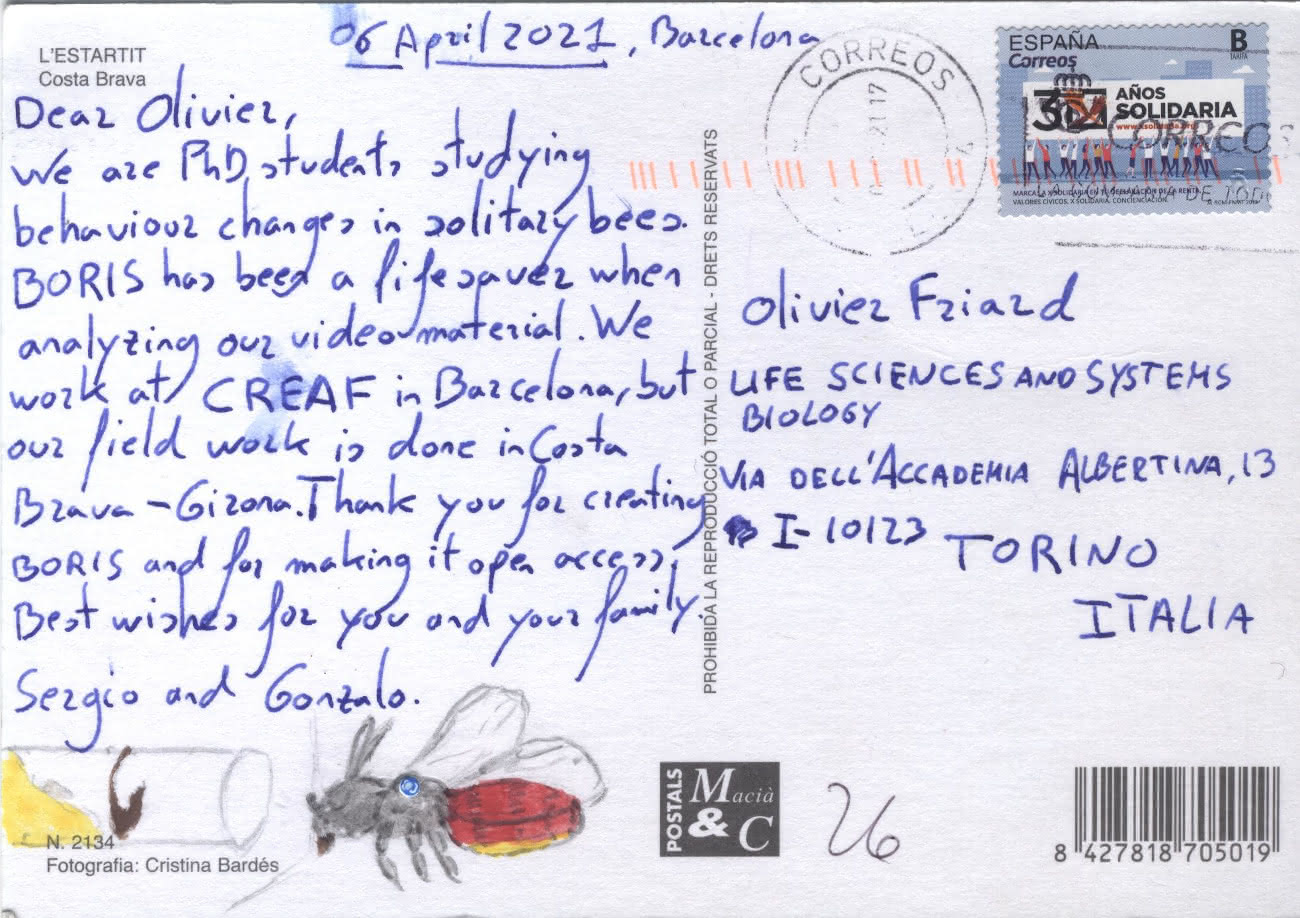 L'ESTARTIT
Costa Brava
06 April 2021, Barcelona
Dear Olivier,
We are PhD students studying
behaviour changes in solitary bees.
BORIS has been a lifesaver when
analyzing our video material. We
work at CREAF in Barcelona, but
our field work is done in Costa
Brava - Girona. Thank you for creating
BORIS and for making it open access,
Best wishes for you and your family.
Sergio and Gonzalo.
N. 2134
Fotografia: Cristina Bardés
PROHIBIDA LA REPRODUCCIÓ TOTAL O PARCIAL - DRETS RESERVATS
POSTALS
Macià
& C
CORREOS
21 17
ESPAÑA
Correos
B
TARIFA
30 AÑOS
SOLIDARIA
www.xsolidaria.org
CORREOS
MARCA LA X SOLIDARIA EN TU DECLARACIÓN DE LA RENTA.
VALORES CÍVICOS. X SOLIDARIA. CONCIENCIACIÓN.
Olivier Friard
LIFE SCIENCES AND SYSTEMS
BIOLOGY
VIA DELL'ACCADEMIA ALBERTINA, 13
I-10123 TORINO
ITALIA
26
8 427818 705019